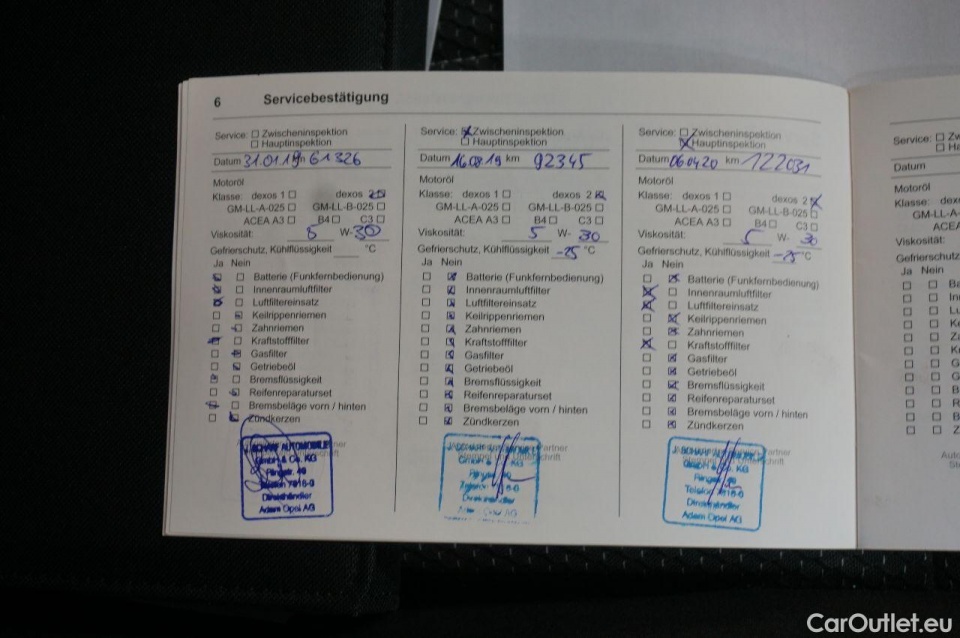 6 Servicebestätigung
Service: Zwischeninspektion
Hauptinspektion
Datum 31.01.19 km 61326
Motoröl
Klasse: dexos 1 dexos 2
GM-LL-A-025 GM-LL-B-025
ACEA A3 B4 C3
Viskosität: 5 W- 30
Gefrierschutz, Kühlflüssigkeit °C
Ja Nein
Batterie (Funkfernbedienung)
Innenraumluftfilter
Luftfiltereinsatz
Keilrippenriemen
Zahnriemen
Kraftstofffilter
Gasfilter
Getriebeöl
Bremsflüssigkeit
Reifenreparaturset
Bremsbeläge vorn / hinten
Zündkerzen
SCHARF AUTOMOBILE
GmbH & Co. KG
Ringstr. 49
Direkthändler
Adam Opel AG
Service: Zwischeninspektion
Hauptinspektion
Datum 16.08.19 km 92345
Motoröl
Klasse: dexos 1 dexos 2
GM-LL-A-025 GM-LL-B-025
ACEA A3 B4 C3
Viskosität: 5 W- 30
Gefrierschutz, Kühlflüssigkeit -25 °C
Ja Nein
Batterie (Funkfernbedienung)
Innenraumluftfilter
Luftfiltereinsatz
Keilrippenriemen
Zahnriemen
Kraftstofffilter
Gasfilter
Getriebeöl
Bremsflüssigkeit
Reifenreparaturset
Bremsbeläge vorn / hinten
Zündkerzen
GmbH & KG
Direkthändler
Adam Opel AG
Service: Zwischeninspektion
Hauptinspektion
Datum 060420 km 122031
Motoröl
Klasse: dexos 1 dexos 2
GM-LL-A-025 GM-LL-B-025
ACEA A3 B4 C3
Viskosität: 5 W- 30
Gefrierschutz, Kühlflüssigkeit -25 °C
Ja Nein
Batterie (Funkfernbedienung)
Innenraumluftfilter
Luftfiltereinsatz
Keilrippenriemen
Zahnriemen
Kraftstofffilter
Gasfilter
Getriebeöl
Bremsflüssigkeit
Reifenreparaturset
Bremsbeläge vorn / hinten
Zündkerzen
SCHARF AUTOMOBILE
GmbH & Co. KG
Ringstr. 49
Direkthändler
Adam Opel AG
Service:
Datum
Motoröl
Klasse:
GM-LL-A
ACEA
Viskosität:
Gefrierschutz
Ja Nein
CarOutlet.eu